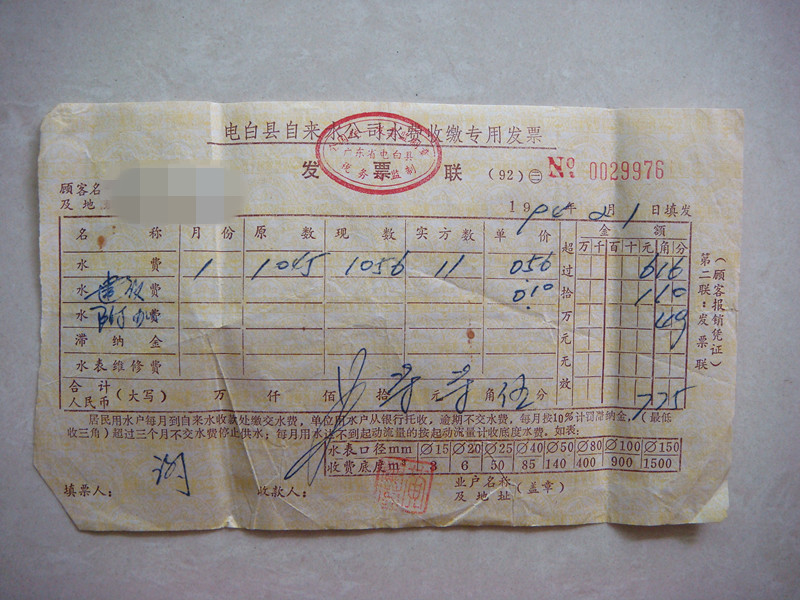 电白县自来水公司水费收缴专用发票
广东省电白县
税务 监制
发票联 (92) ㊂ № 0029976
顾客名
及地
1994年2月1日填发
名称 月份 原数 现数 实方数 单价 超过拾万元无效 金额
万 千 百 十 元 角 分
水费 1 1045 1056 11 0.56 6 1 6
水 费 0.10 1 1 0
水附加费 49
滞纳金
水表维修费
合计人民币(大写) 万 仟 佰 拾 元 角 伍 分 7.75
居民用水户每月到自来水收款处缴交水费,单位用水户从银行托收,逾期不交水费,每月按10%计罚滞纳金,(最低
收三角)超过三个月不交水费停止供水;每月用水达不到起动流量的按起动流量计收底度水费,如表:
水表口径mm ∅15 ∅20 ∅25 ∅40 ∅50 ∅80 ∅100 ∅150
收费底度m³ 3 6 50 85 140 400 900 1500
填票人: 收款人: 业户名称及地址(盖章)
第二联:发票联
(顾客报销凭证)